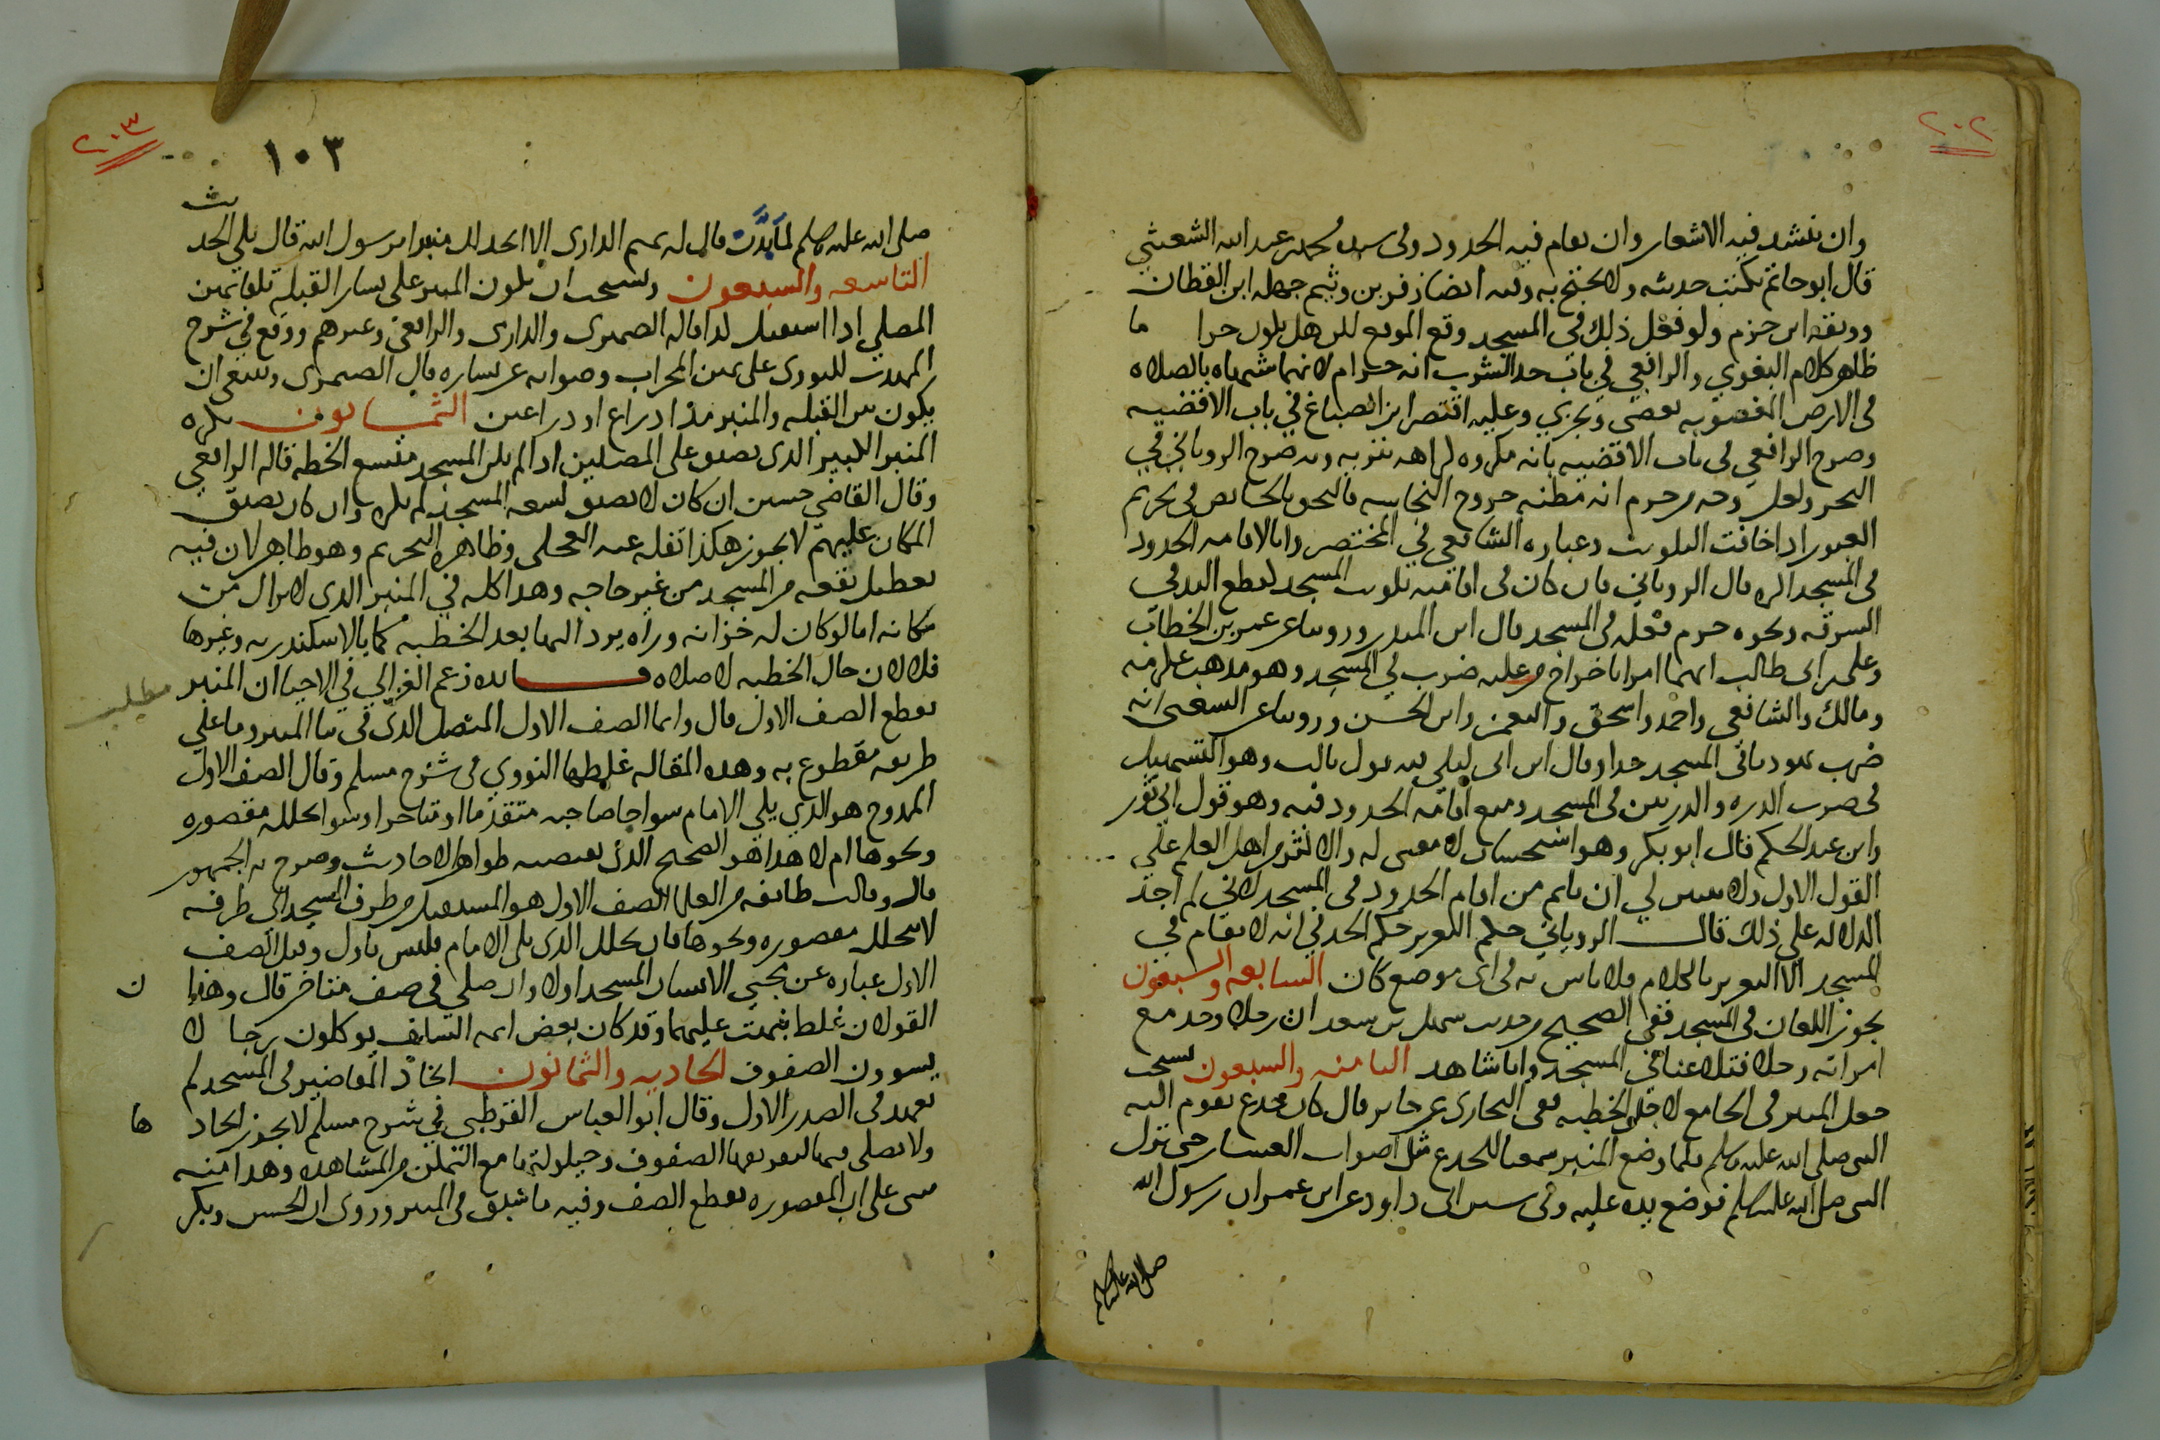 ٢٠٢
وان ينشد فيه الاشعار وان تقام فيه الحدود وفي سنده محمد بن عبد الله الشعيثي
قال ابو حاتم يكتب حديثه ولا يحتج به وفيه ايضا زفر بن وثيم جهله ابن القطان
ووثقه ابن حزم ولو فعل ذلك في المسجد وقع الموقع لكن هل يكون حراما
ظاهر كلام البغوي والرافعي في باب حد الشرب انه حرام لانهما شبهاه بالصلاه
في الارض المغصوبه يعصي ويجزي وعليه اقتصر ابن الصباغ في باب الاقضيه
وصرح الرافعي في باب الاقضيه بانه مكروه كراهه تنزيه وبه صرح الروياني في
البحر ولعل وجه من حرم انه مظنه خروج النجاسه فالتحق بالحائض في تحريم
العبور اذا خافت التلويث وعباره الشافعي في المختصر وانا لاقامه الحدود
في المسجد اكره قال الروياني فان كان في اقامته تلويث المسجد كقطع اليد في
السرقه ونحوه حرم فعله في المسجد قال ابن المنذر وروينا عن عمر بن الخطاب
وعلي بن ابي طالب انهما امرا باخراج من عليه ضرب في المسجد وهو مذهب عكرمه
ومالك والشافعي واحمد واسحق والنعمن وابن الحسن وروينا عن الشعبي انه
ضرب يهوديا في المسجد حدا وقال ابن ابي ليلى به يقول مالك وهو التسهيل
في ضرب الدره والدرتين في المسجد ومنع اقامه الحدود فيه وهو قول ابي ثور
وابن عبد الحكم قال ابو بكر وهو استحسان لا معنى له والاكثر من اهل العلم على
القول الاول ولا يتبين لي ان ياثم من اقام الحدود في المسجد لاني لم اجد
الدلاله على ذلك قال الروياني حكم التعزير حكم الحد في انه لا يقام في
المسجد الا التعزير بالكلام فلا باس به في اي موضع كان السابعه والسبعون
يجوز اللعان في المسجد ففي الصحيح من حديث سهل بن سعد ان رجلا وجد مع
امراته رجلا فتلاعنا في المسجد وانا شاهد الثامنه والسبعون يستحب
جعل المنبر في الجامع لاجل الخطبه ففي البخاري عن جابر قال كان جذع يقوم اليه
النبي صلى الله عليه وسلم فلما وضع المنبر سمعنا للجذع مثل اصوات العشار حتى نزل
النبي صلى الله عليه وسلم فوضع يده عليه وفي سنن ابي داود عن ابن عمر ان رسول الله
صلى الله عليه وسلم
٢٠٣
١٠٣
صلى الله عليه وسلم لما بدن قال له تميم الداري الا اتخذ لك منبرا يا رسول الله قال بلى الحديث
التاسعه والسبعون ويستحب ان يكون المنبر على يسار القبله تلقا يمين
المصلي اذا استقبل كذا قاله الصيمري والدارمي والرافعي وغيرهم ووقع في شرح
المهذب للنووي على يمين المحراب وصوابه عن يساره قال الصيمري وينبغي ان
يكون بين القبله والمنبر قدر ذراع او ذراعين الثمانون يكره
المنبر الكبير الذي يضيق على المصلين اذا لم يكن المسجد متسع الخطه قاله الرافعي
وقال القاضي حسين ان كان لا يضيق لسعه المسجد لم يكره وان كان يضيق
المكان عليهم لا يجوز هكذا نقله عنه العجلي وظاهره التحريم وهو ظاهر لان فيه
تعطيل بقعه من المسجد من غير حاجه وهذا كله في المنبر الذي لا يزال من
مكانه اما لو كان له خزانه وراه يرد اليها بعد الخطبه كما بالاسكندريه وغيرها
فلا لان حال الخطبه لا صلاه فائده زعم الغزالي في الاحيا ان المنبر
مطلب
يقطع الصف الاول قال وانما الصف الاول المتصل الذي في فنا المنبر وما على
طرفيه مقطوع به وهذه المقاله غلطها النووي في شرح مسلم وقال الصف الاول
الممدوح هو الذي يلي الامام سوا جا صاحبه متقدما او متاخرا وسوا تخلله مقصوره
ونحوها ام لا هذا هو الصحيح الذي يقتضيه ظواهر الاحاديث وصرح به الجمهور
قال وقالت طائفه من العلما الصف الاول هو المستقبل من طرف المسجد الى طرفه
لا تتخلله مقصوره ونحوها فان تخلل الذي يلي الامام فليس باول وقيل الصف
الاول عباره عن مجي الانسان المسجد اولا وان صلى في صف متاخر قال وهذان
القولان غلط بنبهت عليهما وقد كان بعض ايمه السلف يوكلون رجالا
يسوون الصفوف الحاديه والثمانون اتخاذ المقاصير في المسجد لم
يعهد في الصدر الاول وقال ابو العباس القرطبي في شرح مسلم لا يجوز اتخاذها
ولا يصلي فيها لتفريقها الصفوف وحيلولتها مع التمكن من المشاهده وهذا منه
مبني على ان المقصوره تقطع الصف وفيه ما سبق في المنبر وروى ان الحسن وبكر